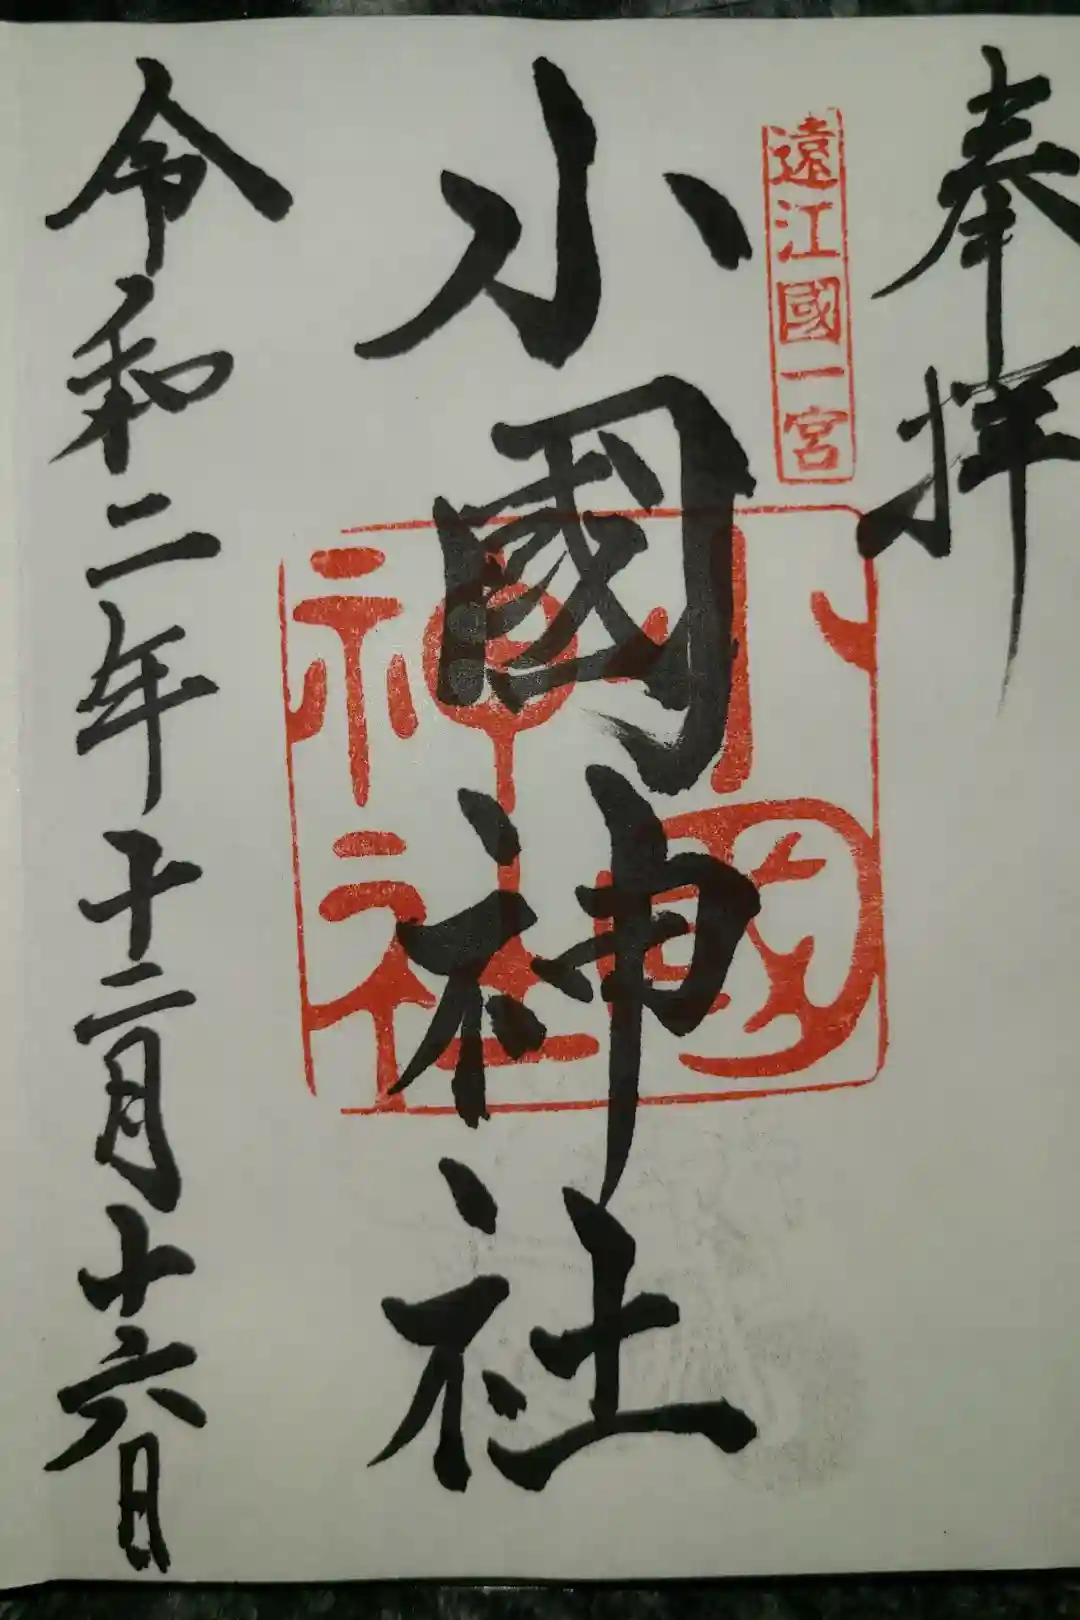 奉拝
遠江國一宮
小國神社
小國
神社
令和二年十二月十六日